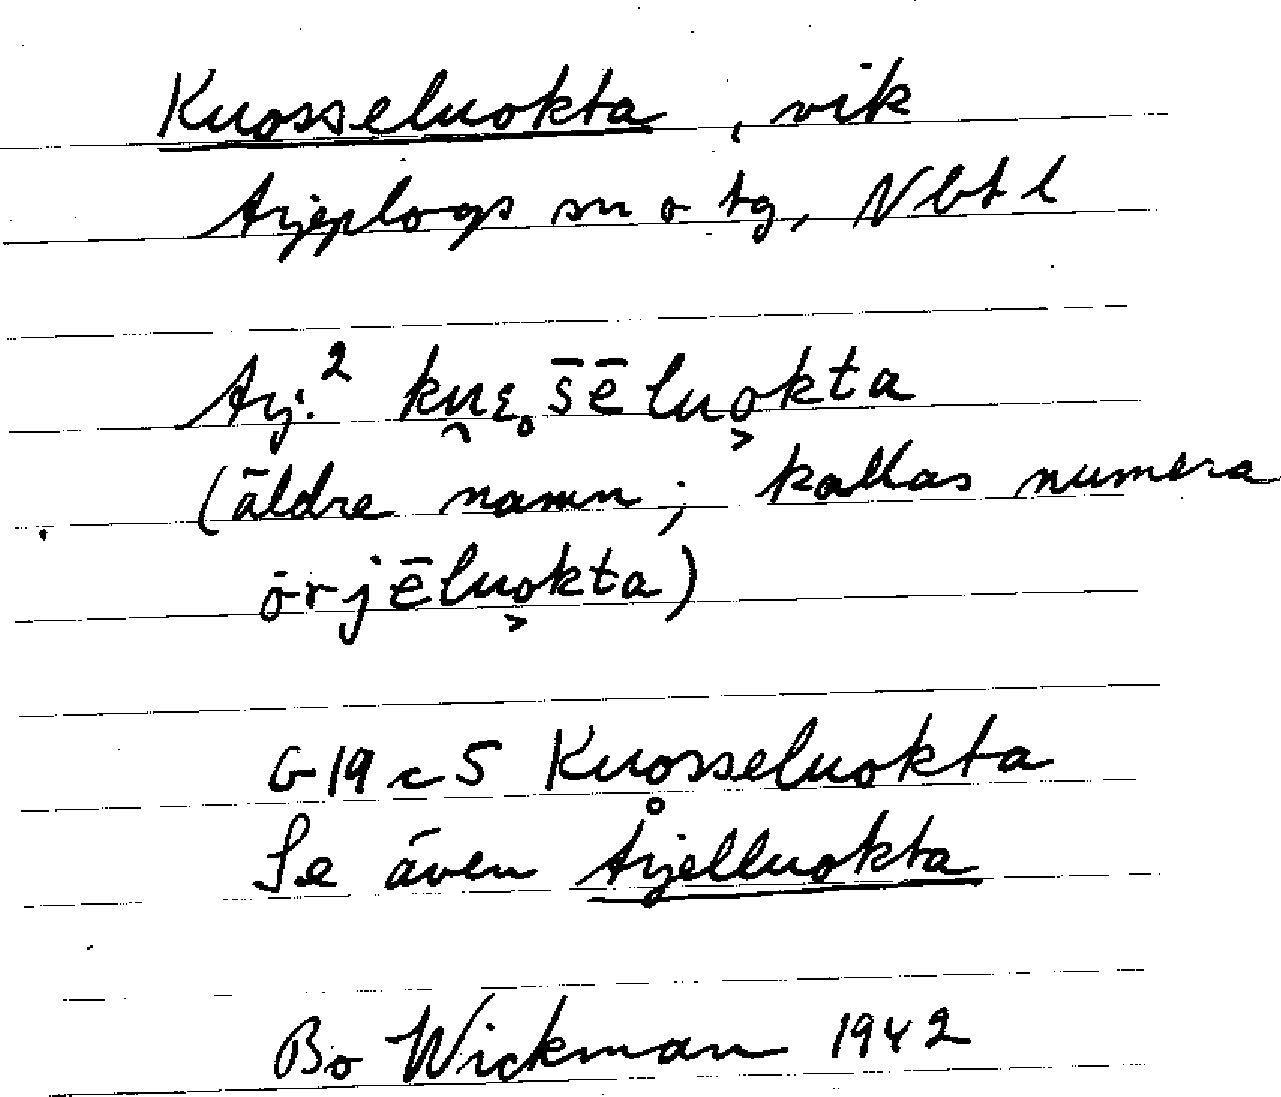 Kuosseluokta, vik
Arjeplogs sn o tg, Nbt l
Arj.² ku̯ɛ̥s̄ēluo̬kta
(äldre namn; kallas numera
ōrjēluo̬kta)
G 19 c 5 Kuosseluokta
Se även Årjelluokta
Bo Wickman 1942